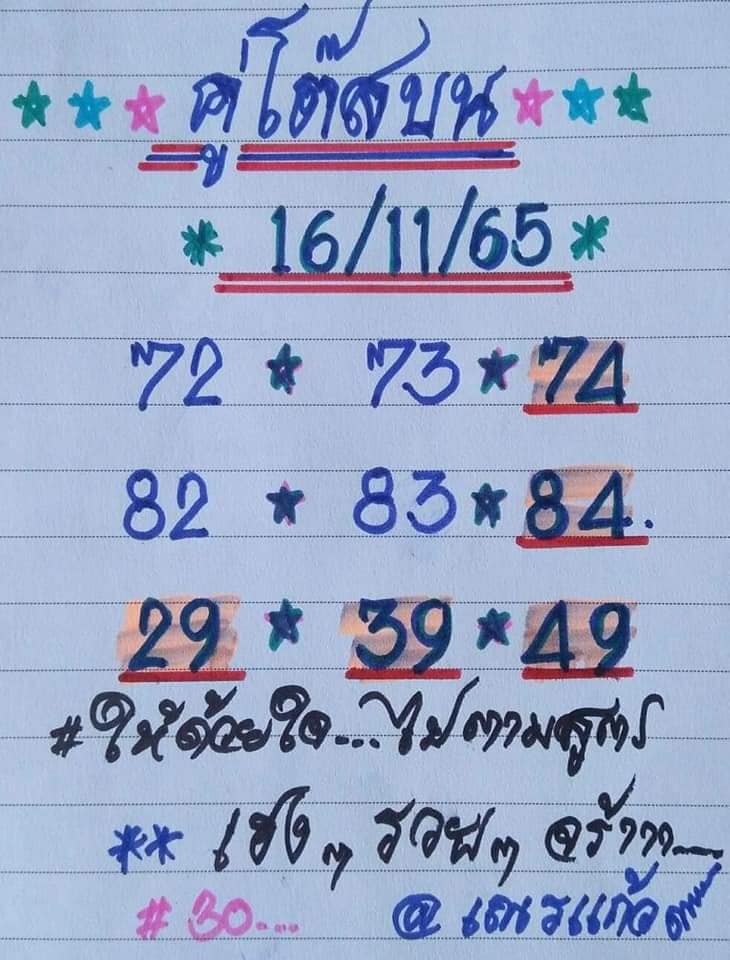 คู่โต๊สบน
16/11/65
72 73 74
82 83 84.
29 39 49
#ให้ด้วยใจ...ไปตามสูตร
** เฮงๆ รวยๆ จร้าาา....
#30.... @ เณรแก้ว